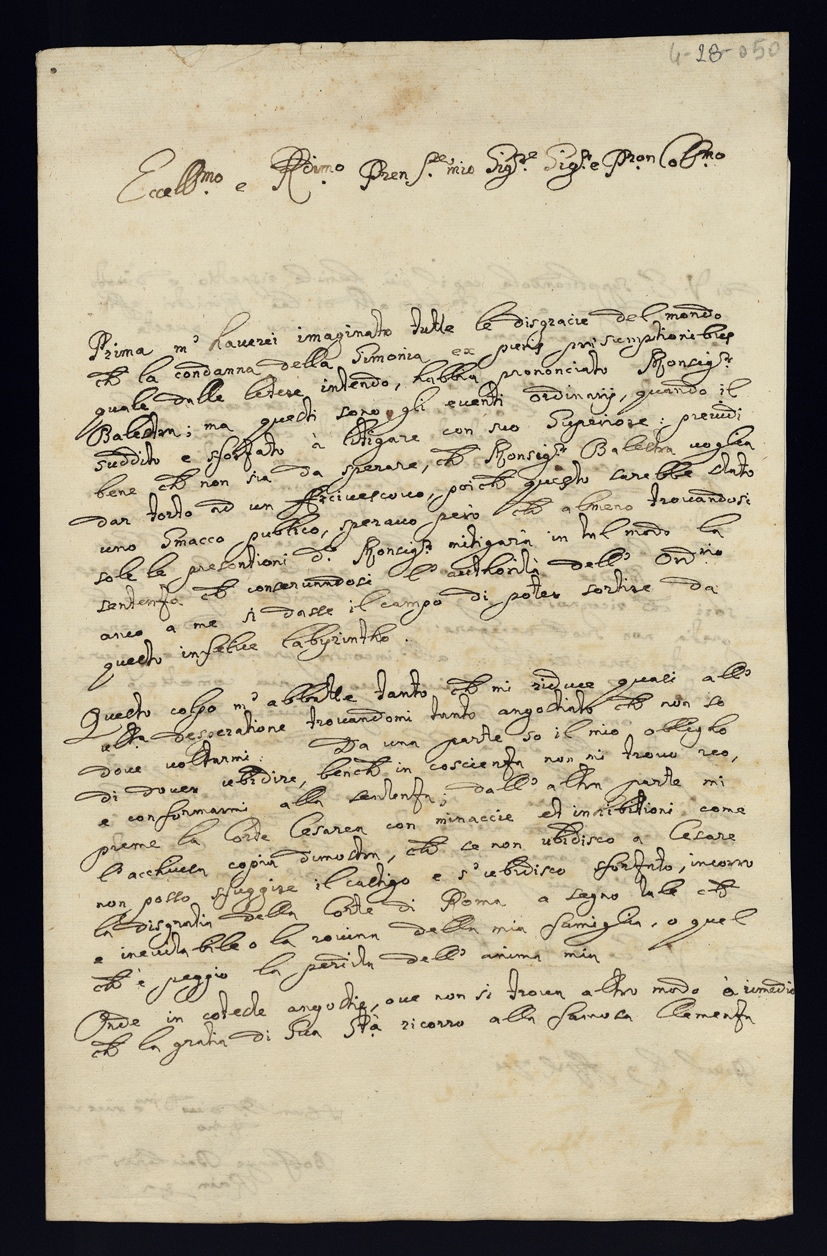 4-28-050
Eccell:mo e R:dimo Pren S:re mio Sig:re Sig:r e Pron Colb:mo
Prima m'haverei imaginato tutte le disgracie del mondo
ch la condanna della Simonia ex puris presemptionibus
quale dalle letere intendo, habbia prononciato Monsig:r
Balestra; ma questi sono gli eventi ordinarij, quando il
suddito e sforzato à litigare con suo Superiore; previdi
bene ch non sia da sperare, ch Monsig:r Balestra voglia
dar torto ad un Arcivescovo, poich questo sarebbe stato
uno smacco publico, speravo però ch almeno trovandosi
sole le presontioni d:o Monsig:r mitigaria in tal modo la
sentenza ch conservandosi l'authorità dell' Ord:rio
anco a me si dasse il campo di poter sortire da
questo infelice labyrintho.
Questo colpo m'abbatte tanto ch mi riduce quasi all'
ulta desperatione trovandomi tanto angostiato ch non so
dove voltarmi: Da una parte so il mio obligho
di dover ubidire, bench in coscienza non mi trovo reo,
e conformarmi alla sentenza; dall' altra parte mi
preme la Corte Cesarea con minaccie et inhibitioni come
l'acchiusa copia dimostra, ch se non ubidisco a Cesare
non posso sfuggire il castigo e s'ubidisco sforzato, incorro
la disgratia della Corte di Roma a segno tale ch
e inevitabile o la rovina della mia famiglia, o quel
ch'è peggio la perdita dell' anima mia
Onde in coteste angostie, ove non si trova altro modo à rimedio
ch la gratia di Sua Stà ricorro alla famosa Clemenza